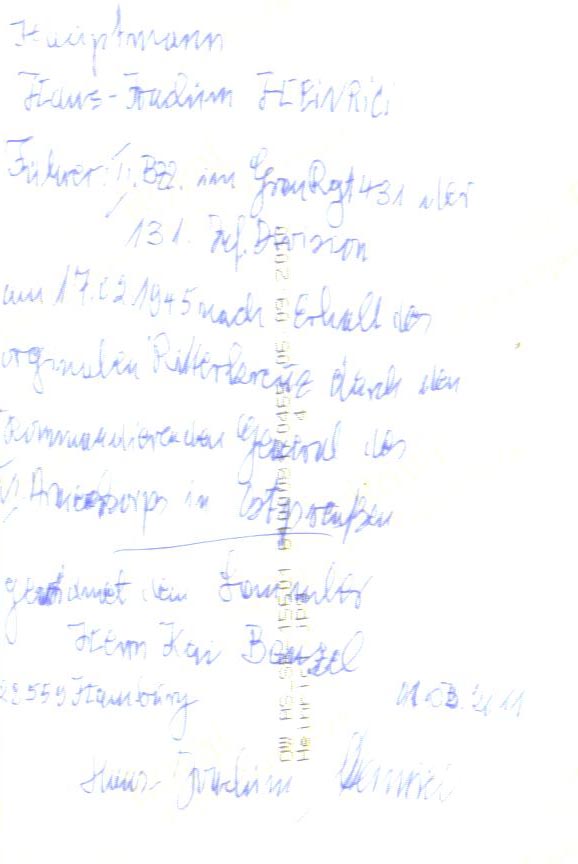 Hauptmann
Hans-Joachim HEINRICI
Führer: II. Btl. im GrenRgt 431 der
131. Inf. Division
am 17.02.1945 nach Erhalt des
orginalen Ritterkreuz durch den
Kommandierenden General des
VI. Armeekorps in Ostpreußen
gewidmet dem Sammler
Herrn Kai Benzel
22559 Hamburg 01.03.2011
Hans-Joachim Heinrici